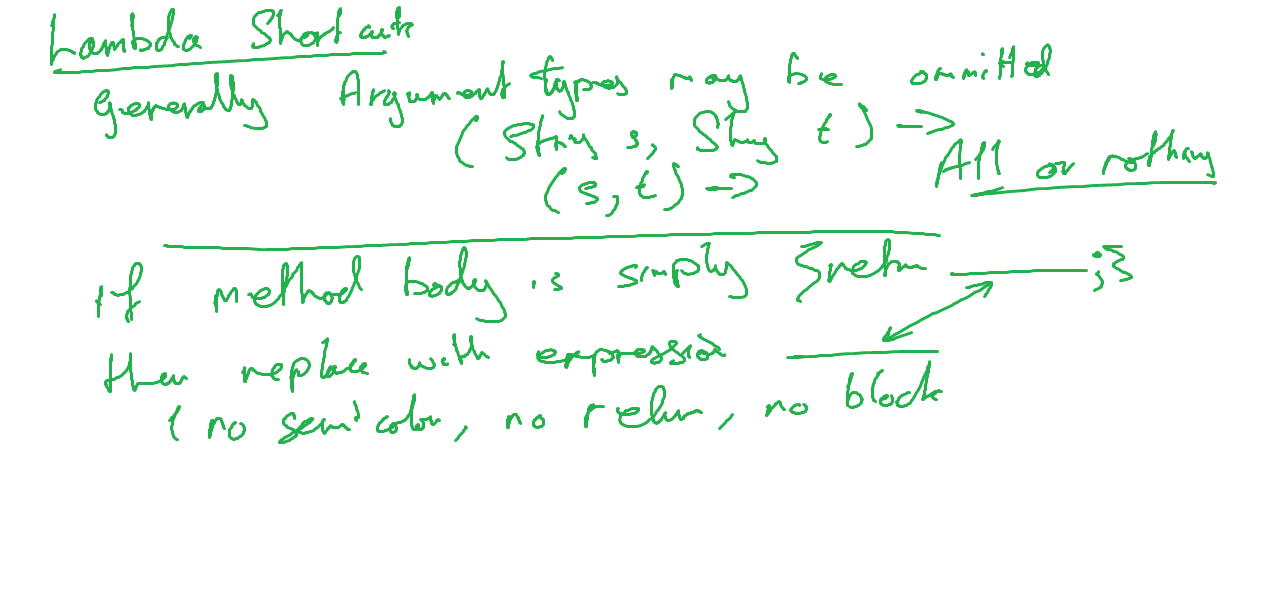 Lambda Shortcuts
Generally Argument types may be ommitted
(String s, String t) ->
All or nothing
(s, t) ->
If method body is simply {return ____ ;}
then replace with expression ____
(no semicolon, no return, no block